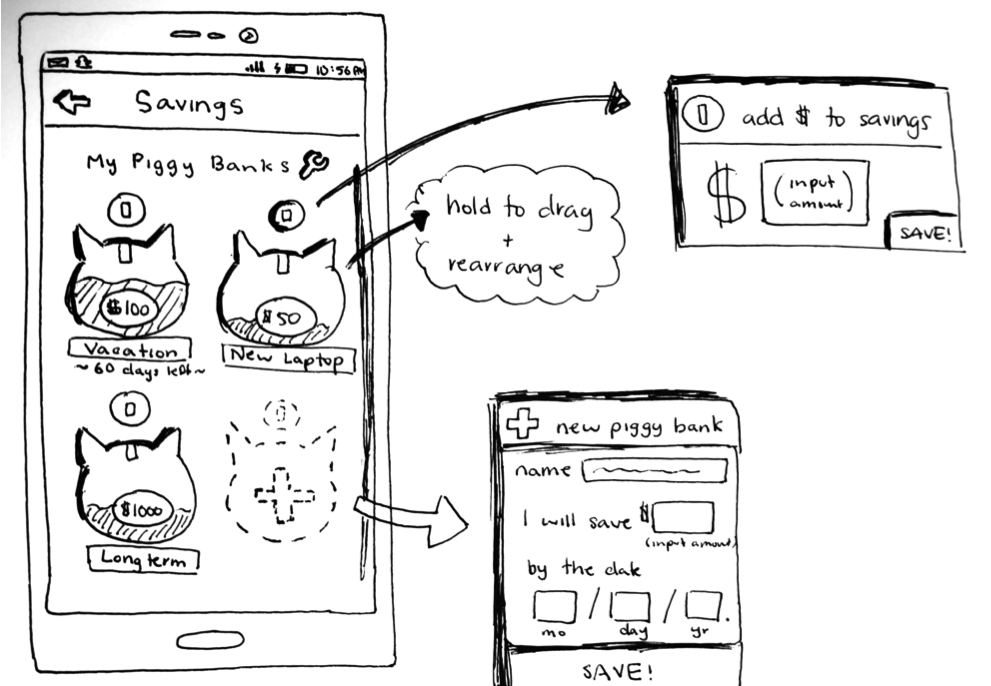 10:56 PM
Savings
My Piggy Banks
$100
Vacation
~ 60 days left ~
$50
New Laptop
$1000
Longterm
hold to drag
+
rearrange
add $ to savings
$
(input
amount)
SAVE!
new piggy bank
name
I will save $
(input amount)
by the date
/ / .
mo day yr
SAVE!